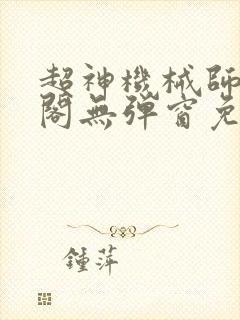 超神機械師
閣無彈窗免
鍾萍